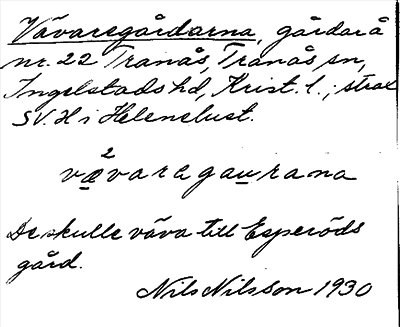 Vävaregårdarna, gårdar å
nr. 22 Tranås, Tranås sn,
Ingelstads hd, Krist. l.; strax
SV. H i Helenelust.
2
vævaragaurana
De skulle väva till Esperöds
gård.
Nils Nilsson 1930